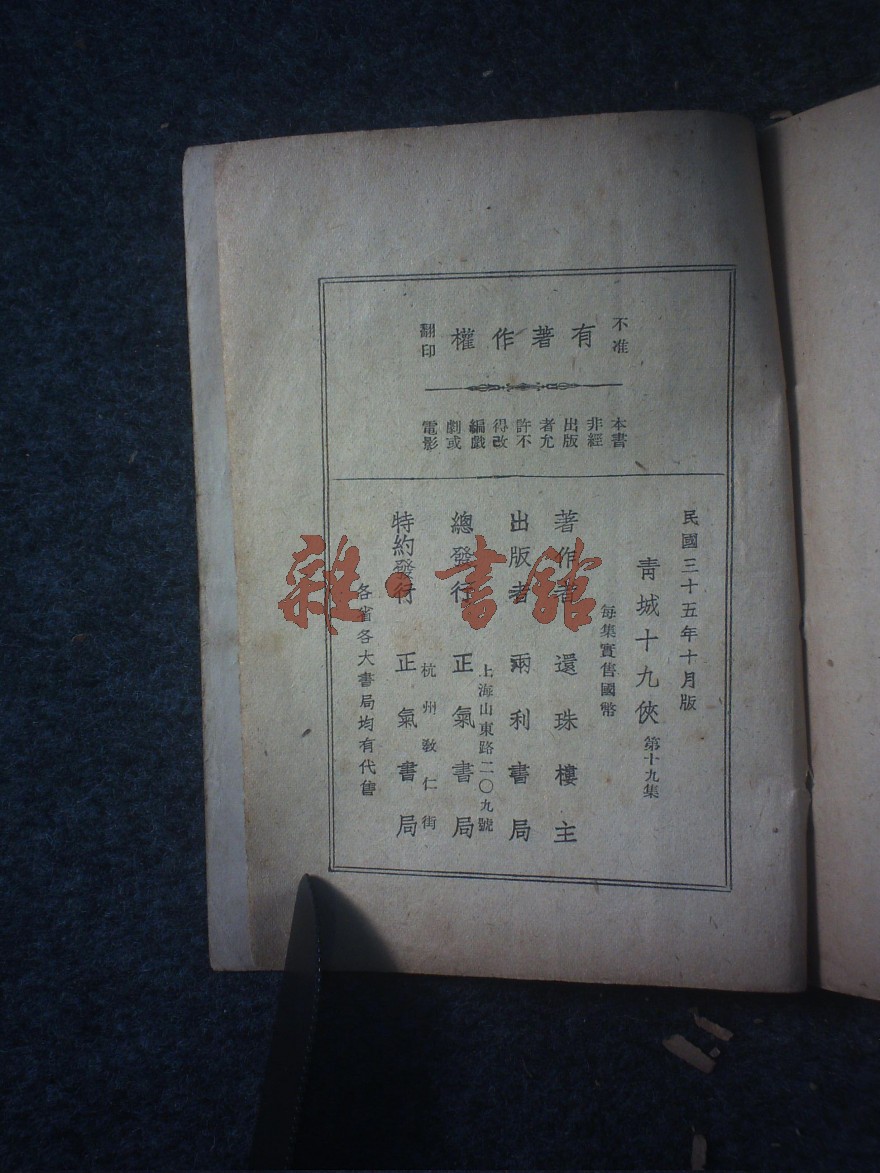 不准
有著作權
翻印
本書
非經
出版
者允
許不
得改
編戲
劇或
電影
民國三十五年十月版
青城十九俠 第十九集
每集實售國幣
著作者 還珠樓主
出版者 兩利書局
上海山東路二〇九號
總發行 正氣書局
杭州教仁街
特約發行 正氣書局
各省各大書局均有代售
雜·書館